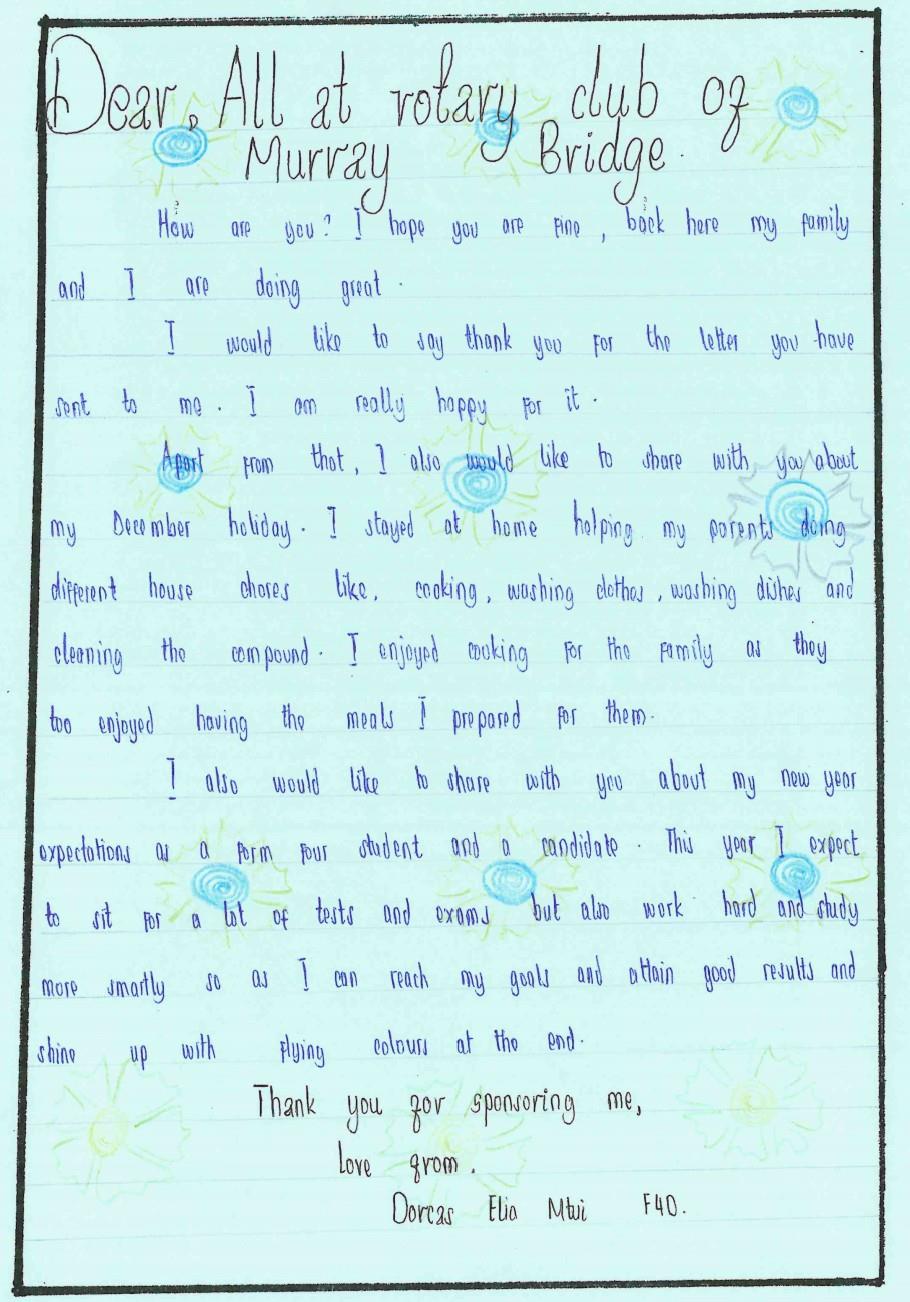 Dear, All at rotary club of
Murray Bridge.
How are you? I hope you are fine, back here my family
and I are doing great.
I would like to say thank you for the letter you have
sent to me. I am really happy for it.
Apart from that, I also would like to share with you about
my December holiday. I stayed at home helping my parents doing
different house chores like, cooking, washing clothes, washing dishes and
cleaning the compound. I enjoyed cooking for the family as they
too enjoyed having the meals I prepared for them.
I also would like to share with you about my new year
expectations as a form four student and a candidate. This year I expect
to sit for a lot of tests and exams but also work hard and study
more smartly so as I can reach my goals and attain good results and
shine up with flying colours at the end.
Thank you for sponsoring me,
love from.
Dorcas Elia Mtui F4D.